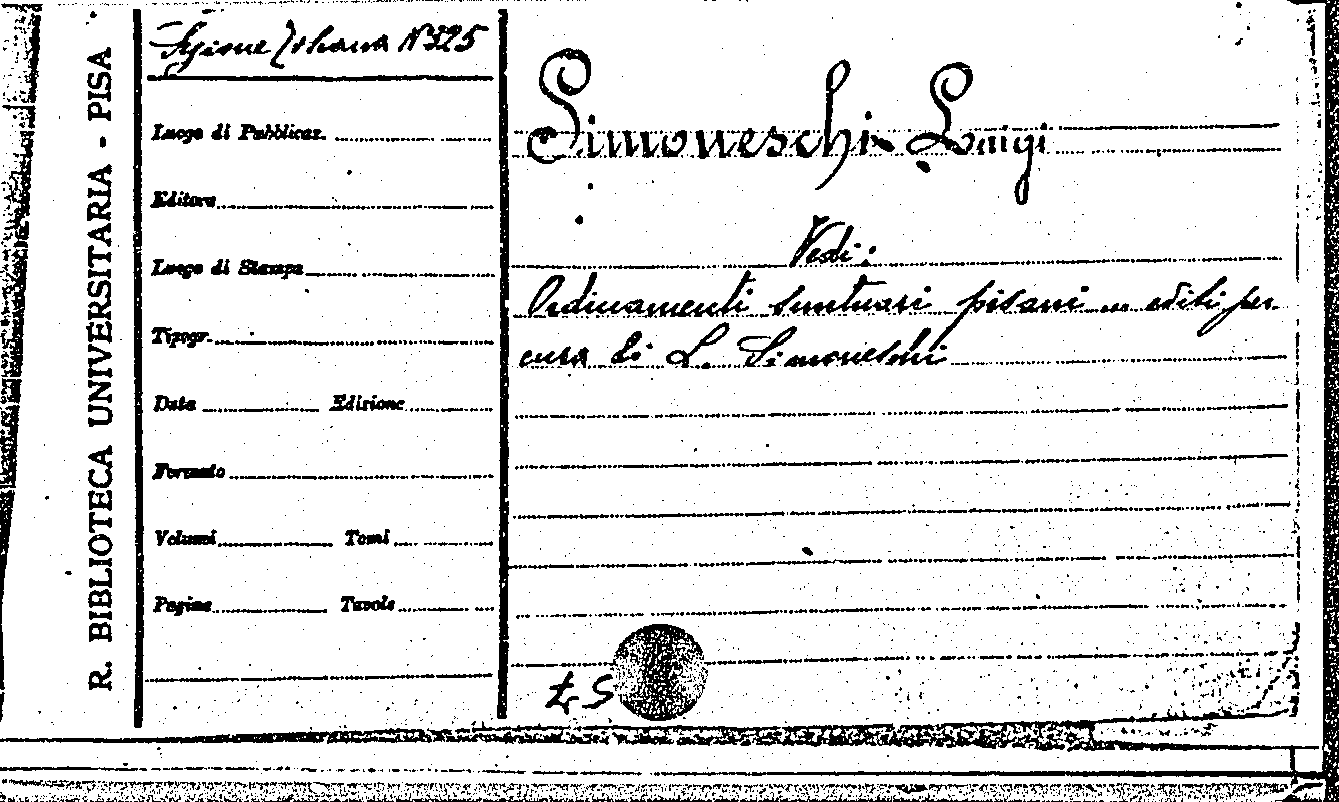 R. BIBLIOTECA UNIVERSITARIA - PISA
N 325
Luogo di Pubblicaz.
Editore
Luogo di Stampa
Tipogr.
Data Edizione
Formato
Volumi Tomi
Pagine Tavole
Simoneschi Luigi
Vedi:
Ordinamenti suntuari pisani ... editi per
cura di L. Simoneschi